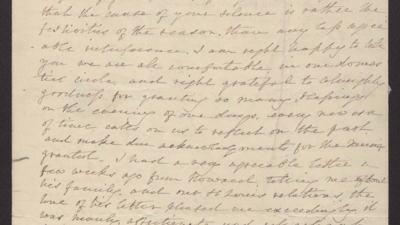 that the cause of your silence is rather the
festivities of the season, than any less agree
able interference. I am right happy to tell
you we are all comfortable in our domes
tic circle, and right grateful to Almighty
goodness for granting so many blessings
on the evening of our days, every new era
of time calls on us to reflect on the past
and make due acknowledgments for the
granted. I had a very agreeable letter a
few weeks ago from telling me
his family, and our relations, the
tone of his letter pleased me exceedingly, it
was affectionate and